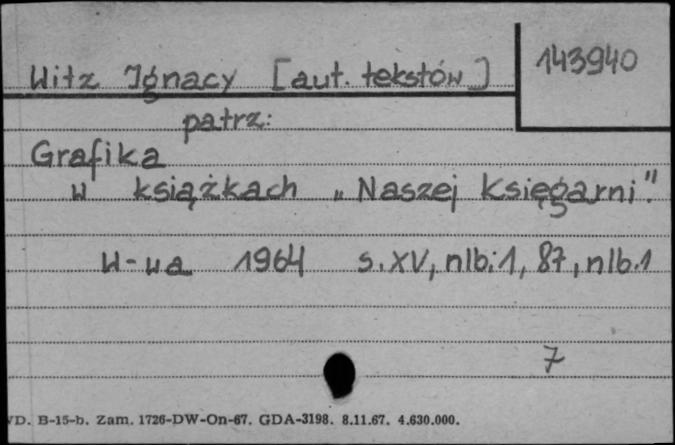 Witz Ignacy [aut. tekstów]
143940
patrz:
Grafika
w książkach „Naszej Księgarni".
W-wa 1964 s. XV, nlb. 1, 87, nlb. 1
7
D. B-15-b. Zam. 1726-DW-On-67. GDA-3198. 8.11.67. 4.630.000.